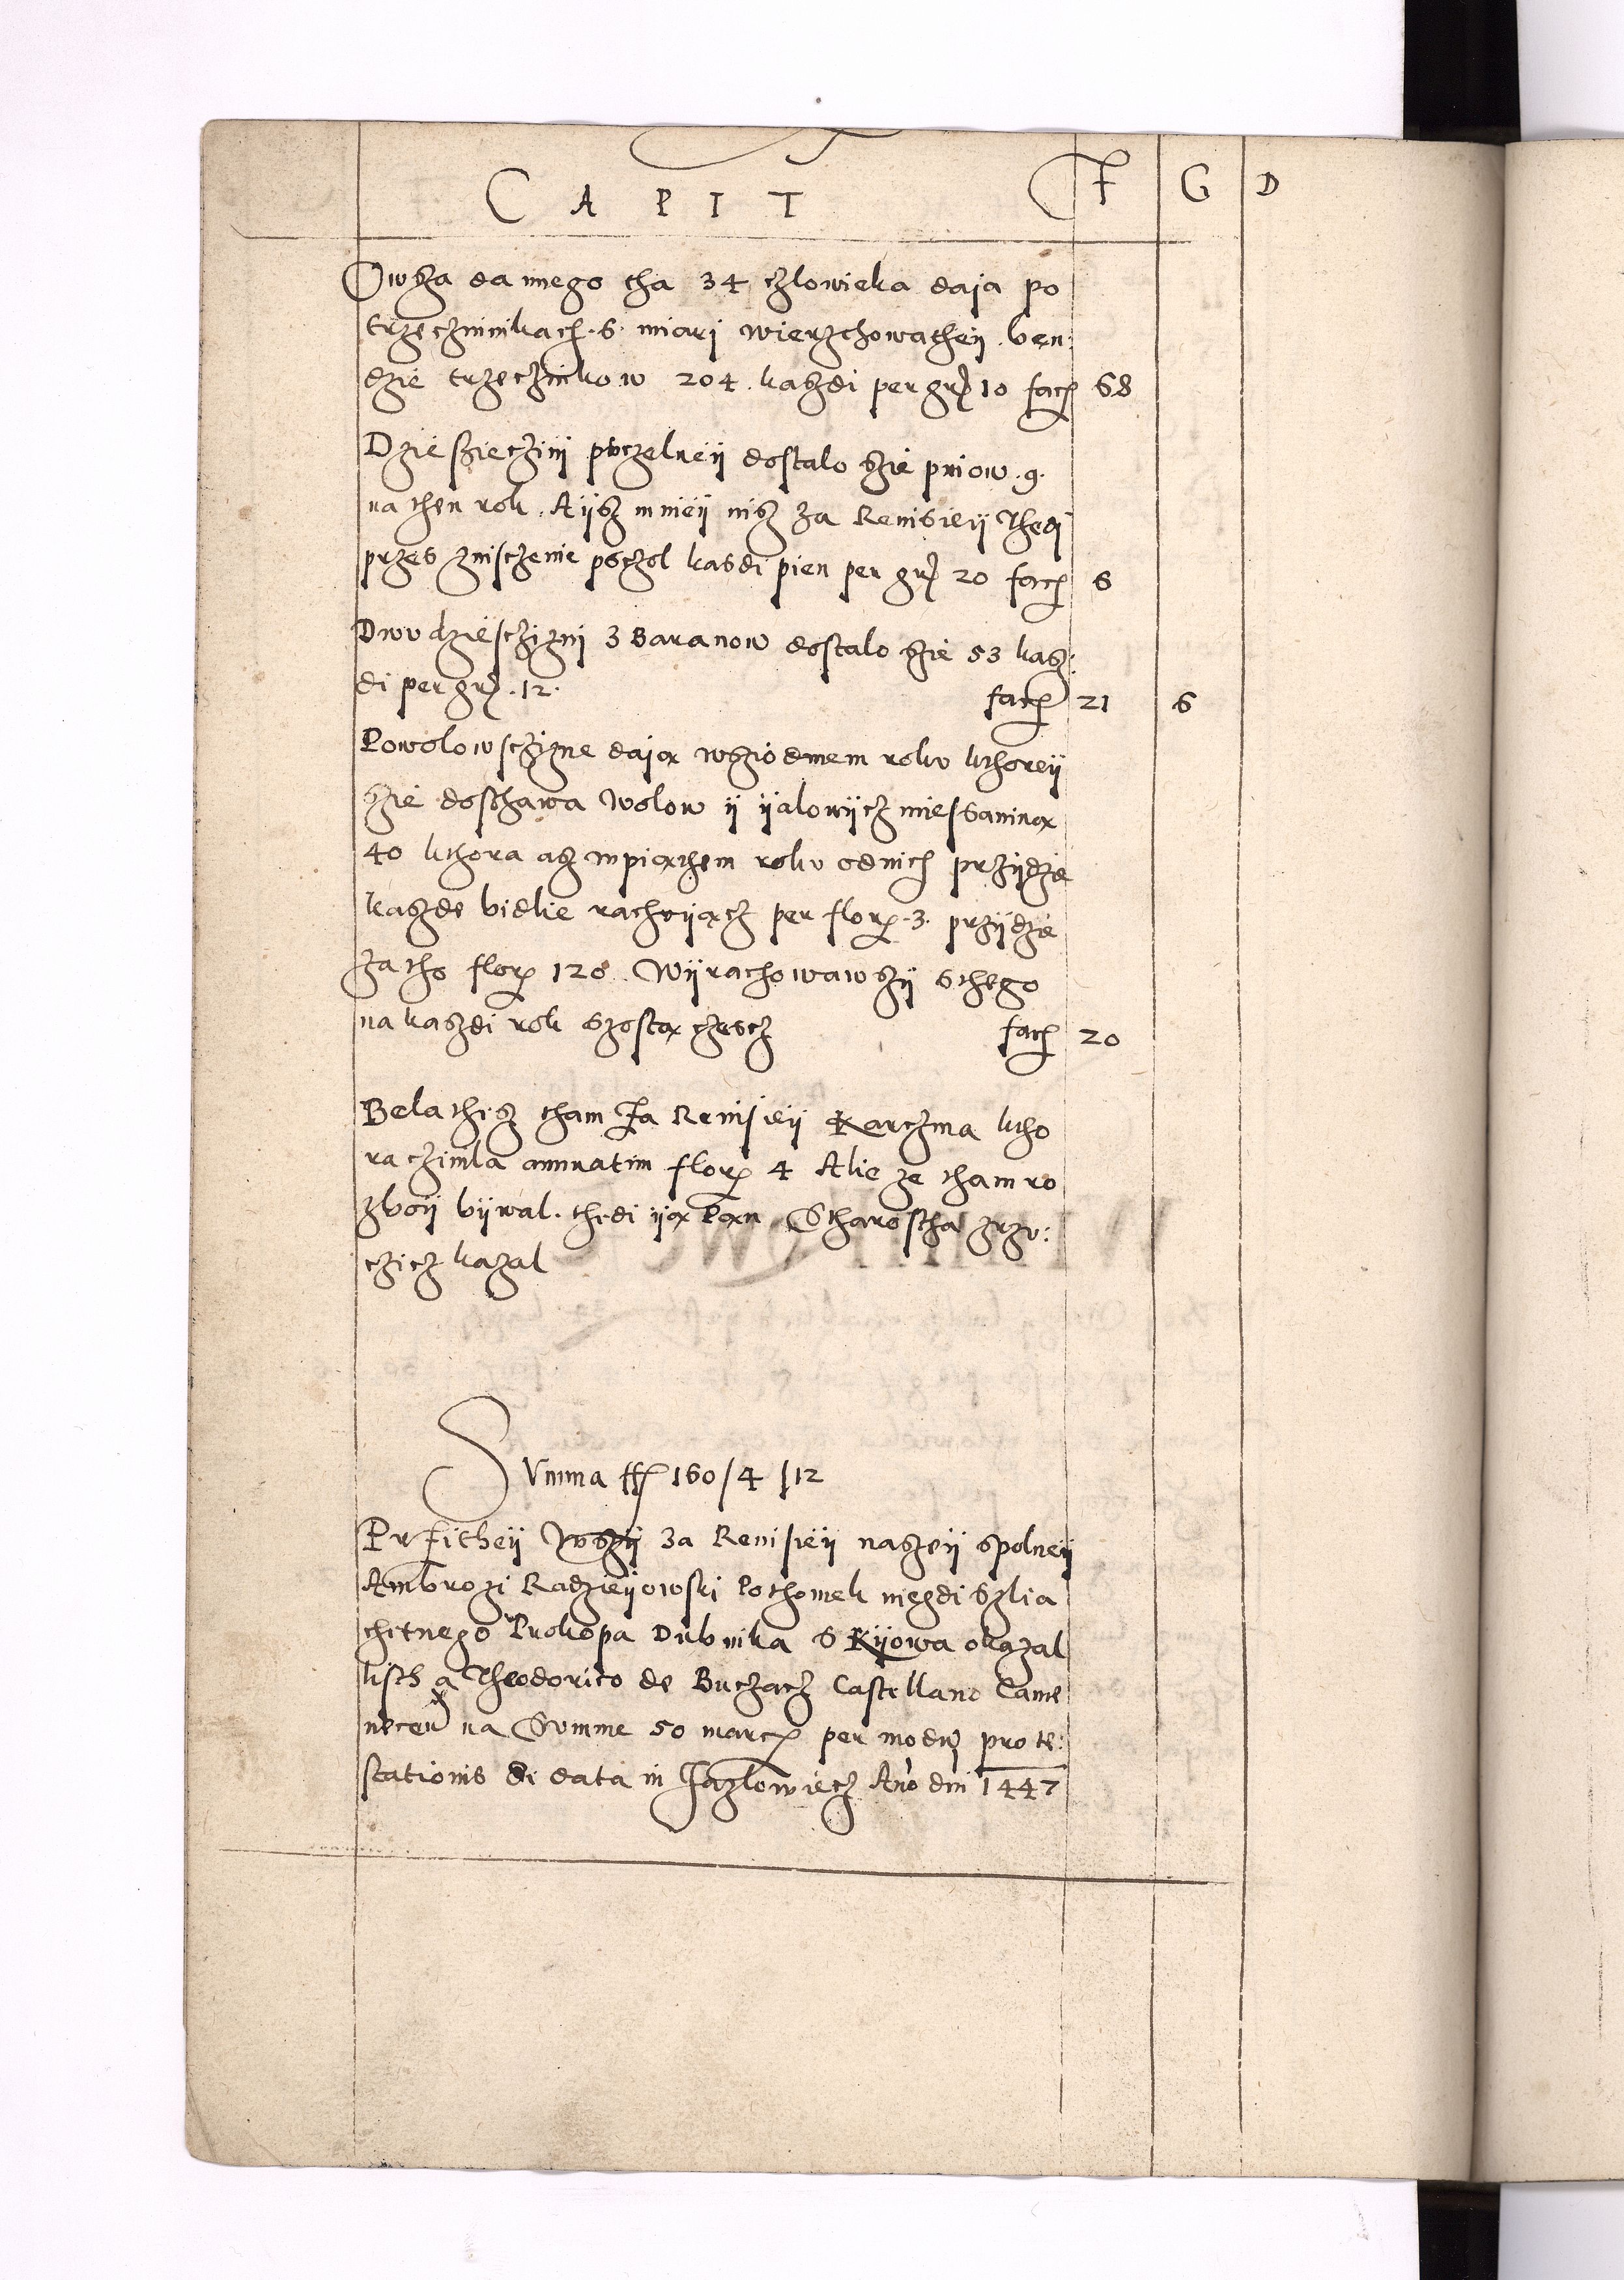 C A P I T F G D
Owsza da mnego tha 34 czlowieka daja po
trzeczinnikach .6. miari wierzchowatheÿ . ben:
dzie trzeczinikow 204 . kaszdi per gr 10 fach 68
Dzieszieczinÿ pbczelneÿ dostalo szie pniow .9.
na then rok . Aÿsz mnieÿ nisz za Revisieÿ Thedi
przes znisczenie pbczol kasdi pien per gr 20 fach 6
Dwvdziesczizni 3 Baranow dostalo szie 53 kasz:
di per gr .12. fach 21 6
Powolowsczizne daja wsziodmem rokv kthoreÿ
szie dosthawa wolow ÿ ÿalowÿcz miessanina
40 kthora asz wpiathem rokv odnich przÿdzie
kaszde bidlie rachvÿacz per flor .3. przÿdzie
zatho flor 120 . Wÿrachowawszÿ sthego
na kaszdi rok szosta czescz fach 20
Bela thisz tham za Revisieÿ Karczma ktho
ra czinila annuatim flor 4 Alie ze tham ro
zboÿ bÿwal . thedi ÿa Pan Stharostha zrzv:
czicz kazal
Svmma ff 160/4/12
Prsitheÿ Wsÿ za Revisieÿ naszeÿ spolneÿ
Ambrozi Radzieÿowski Pothomek niegdi Szlia
chetnego Prokopa Dubnika s Kÿowa okazal
listh a Theodorico de Buczacz Castellano Came
necen na Summe 50 marc per modu prote:
stationis di data in Jazlowiecz Ano dni 1447